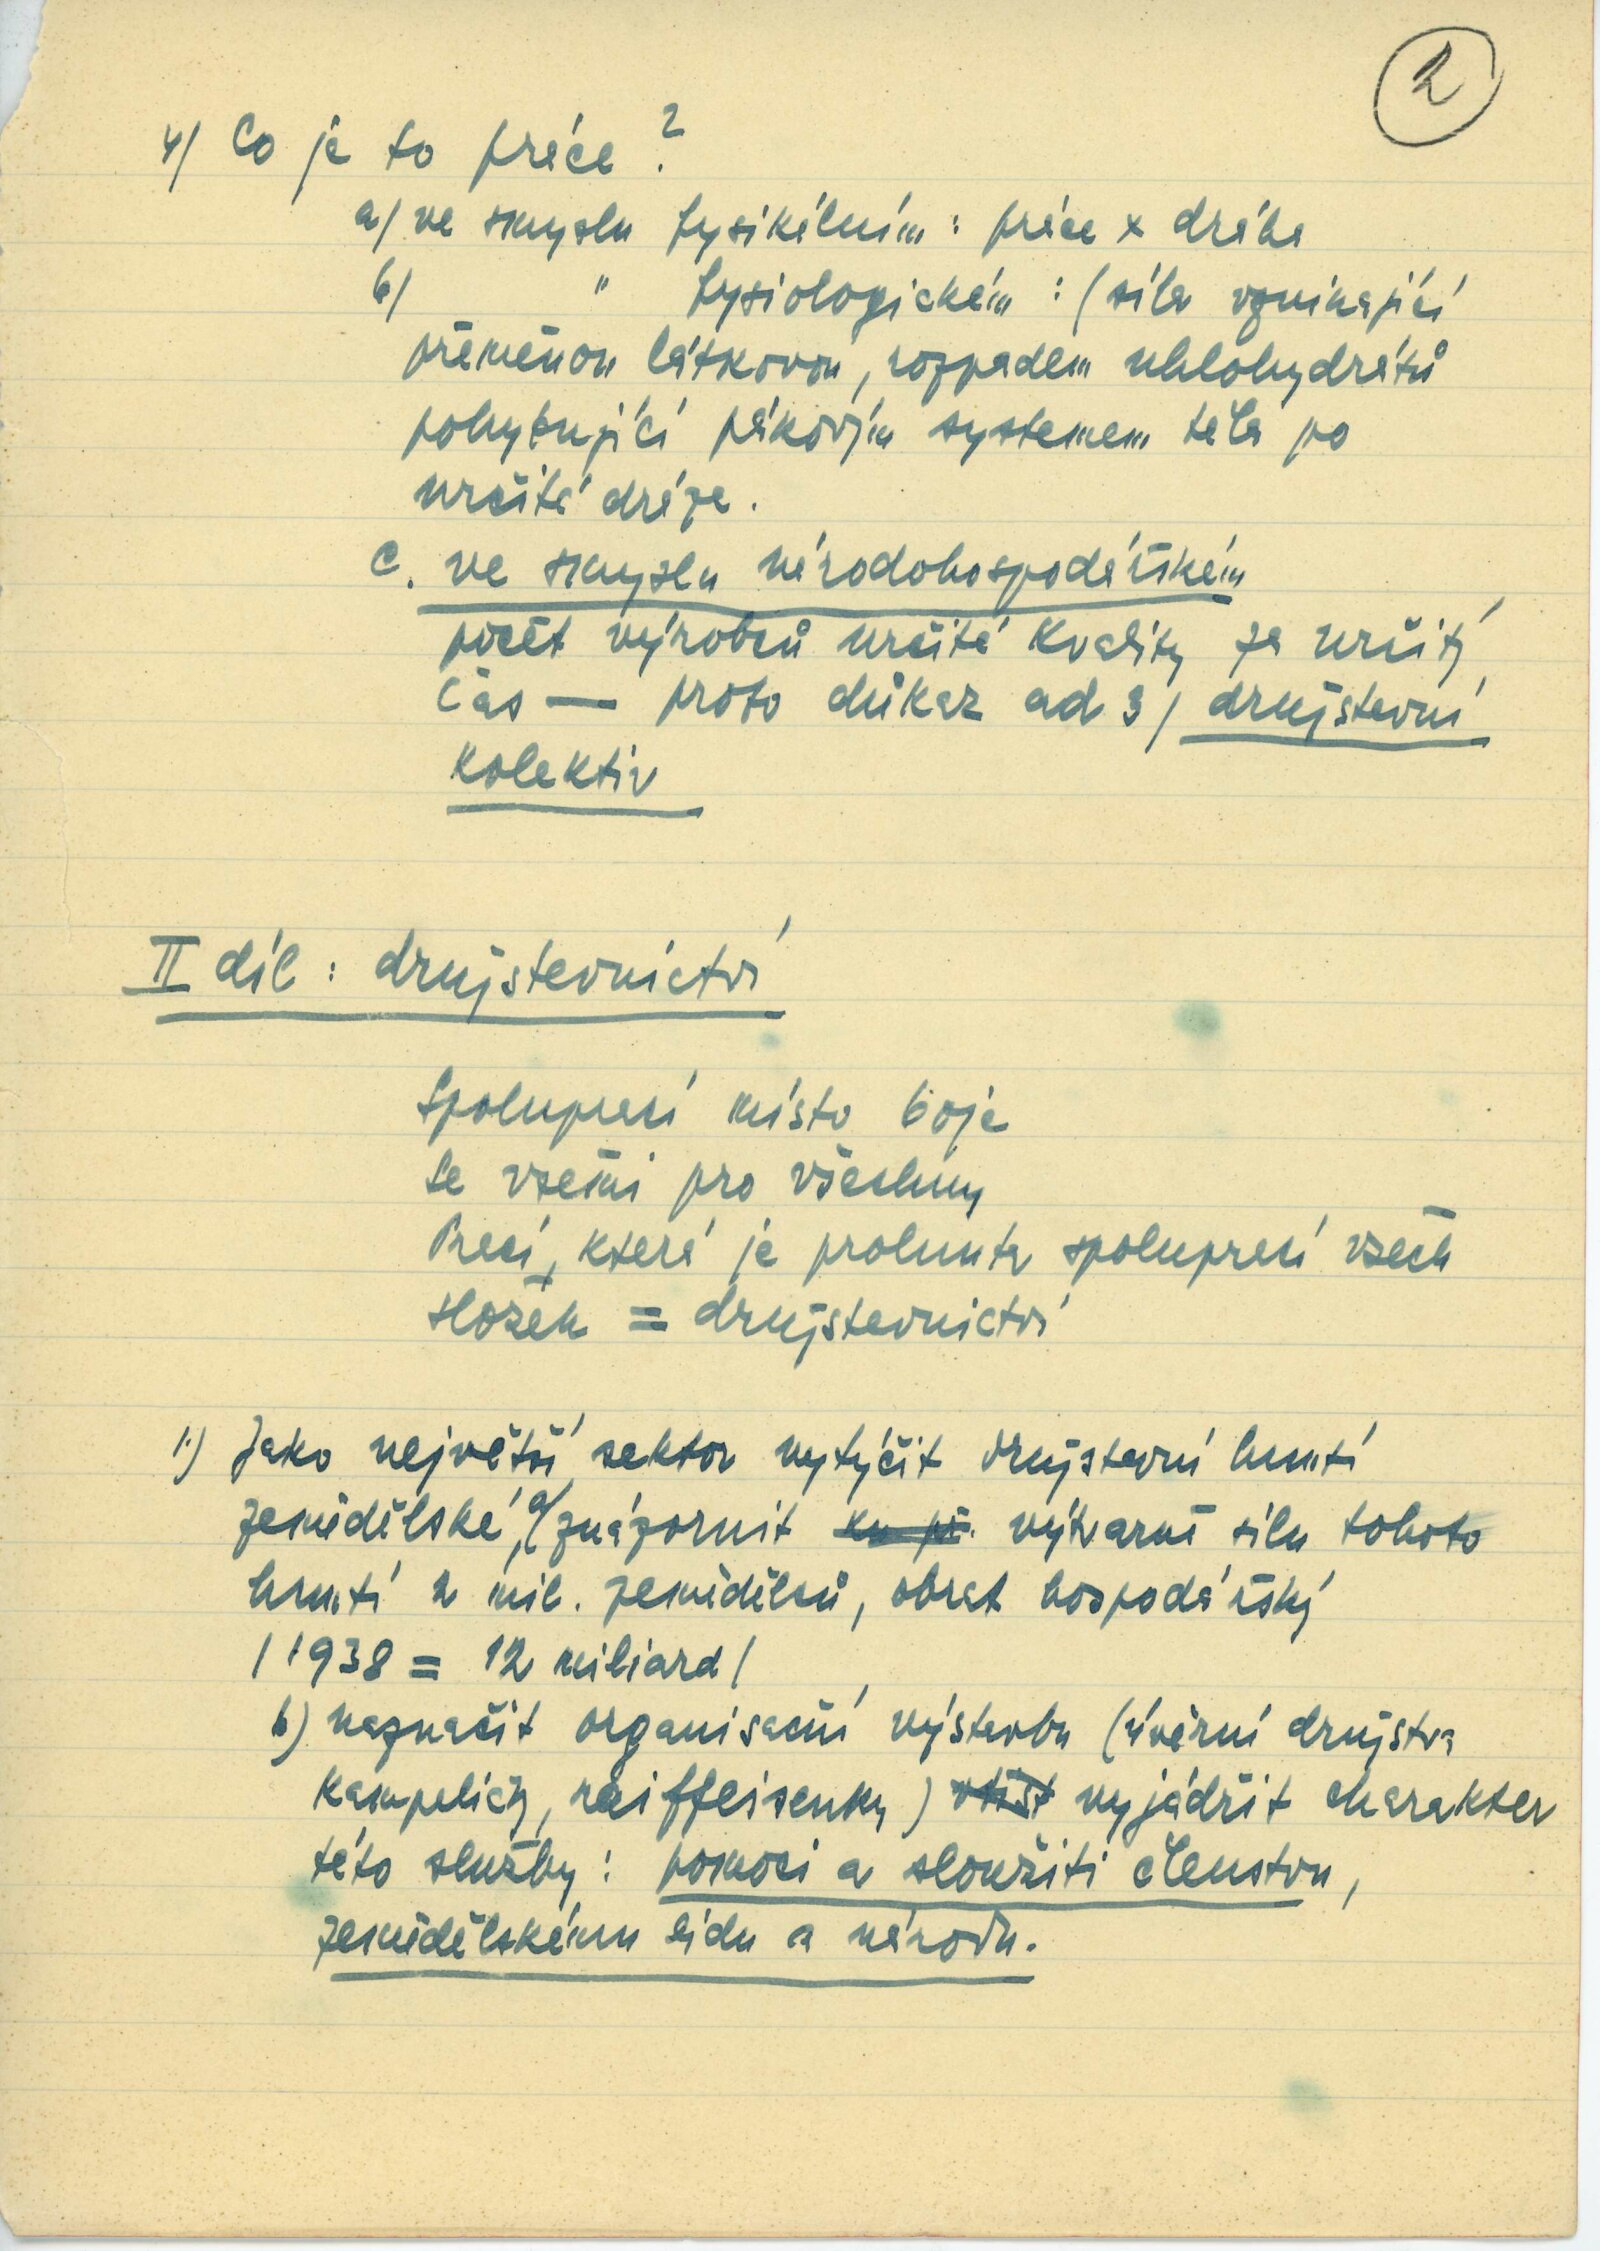 2
4/ Co je to práce?
a/ ve smyslu fysikálním: práce x dráha
b/ " fysiologickém: (síla vznikající
přeměnou látkovou, rozpadem uhlohydrátů
pohybující pákovým systemem těla po
určité dráze.
c. ve smyslu národohospodářském
počet výrobků určité kvality za určitý
čas — proto důkaz ad 3/ družstevní
kolektiv
II díl: družstevnictví
Spoluprací místo boje
Se všemi pro všechny
Prací, která je prolnuta spoluprací všech
složek = družstevnictví
1.) Jako největší sektor vytýčit družstevní hnutí
zemědělské, a/ znázornit výtvarně sílu tohoto
hnutí 2 mil. zemědělců, obrat hospodářský
/1938 = 12 miliard/
b) naznačit organisační výstavbu (úvěrní družstva
kampeličky, raiffeisenky) vyjádřit charakter
této služby: pomoci a sloužiti členstvu,
zemědělskému lidu a národu.